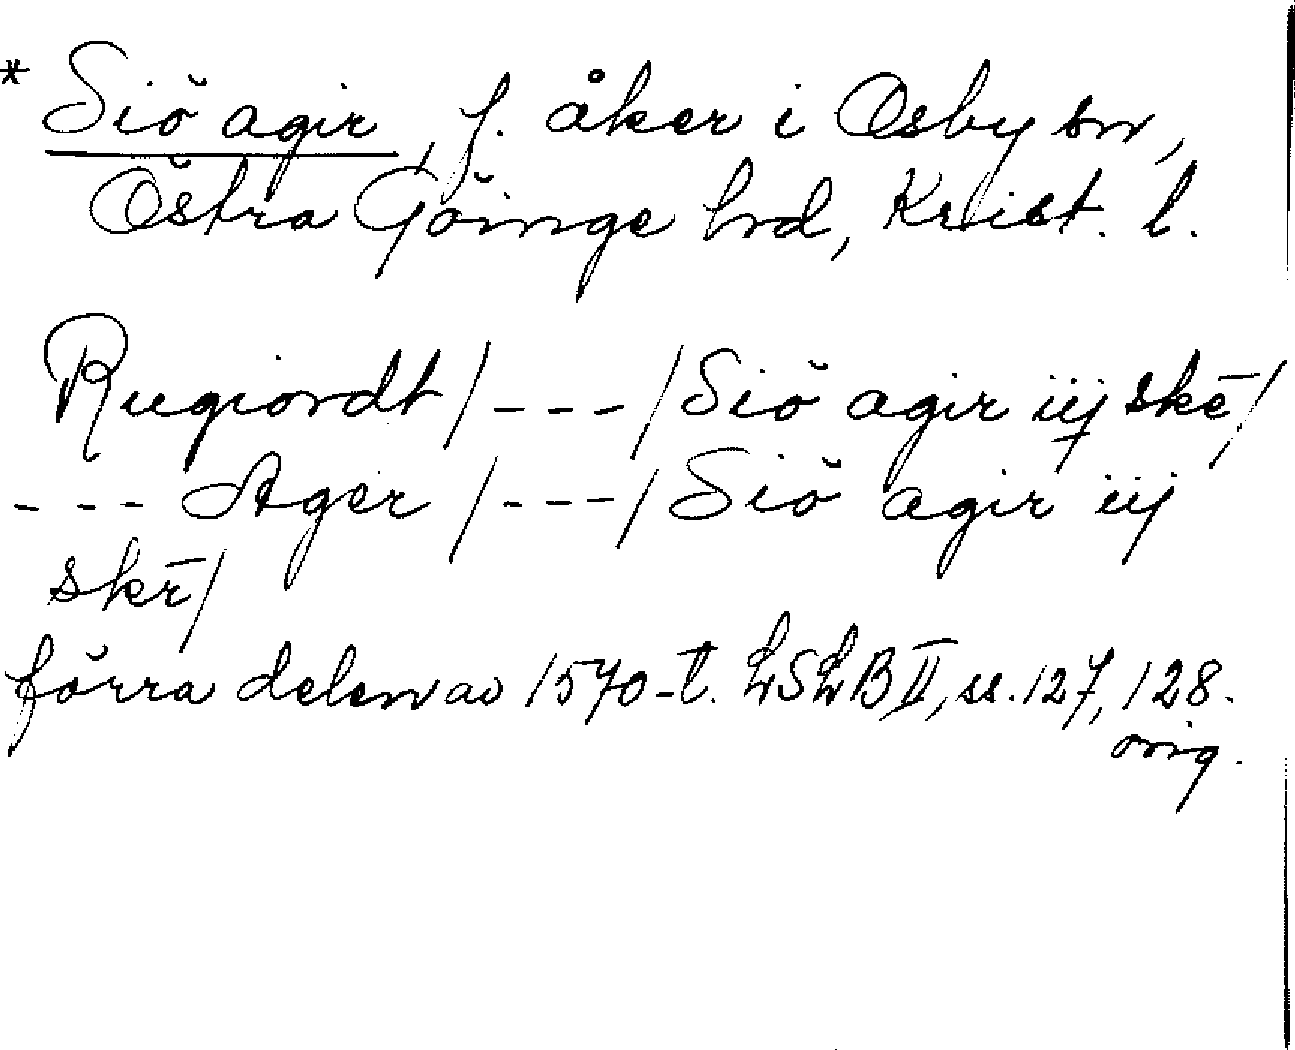 * Siŏ agir, f. åker i Osby sn,
Östra Göinge hrd, Krist. l.
Rugiordt / - - - / Siŏ agir iij skē /
- - - Ager / - - - / Siŏ agir iij
skē /
förra delen av 1570-t. LSLB II, ss. 127, 128.
orig.